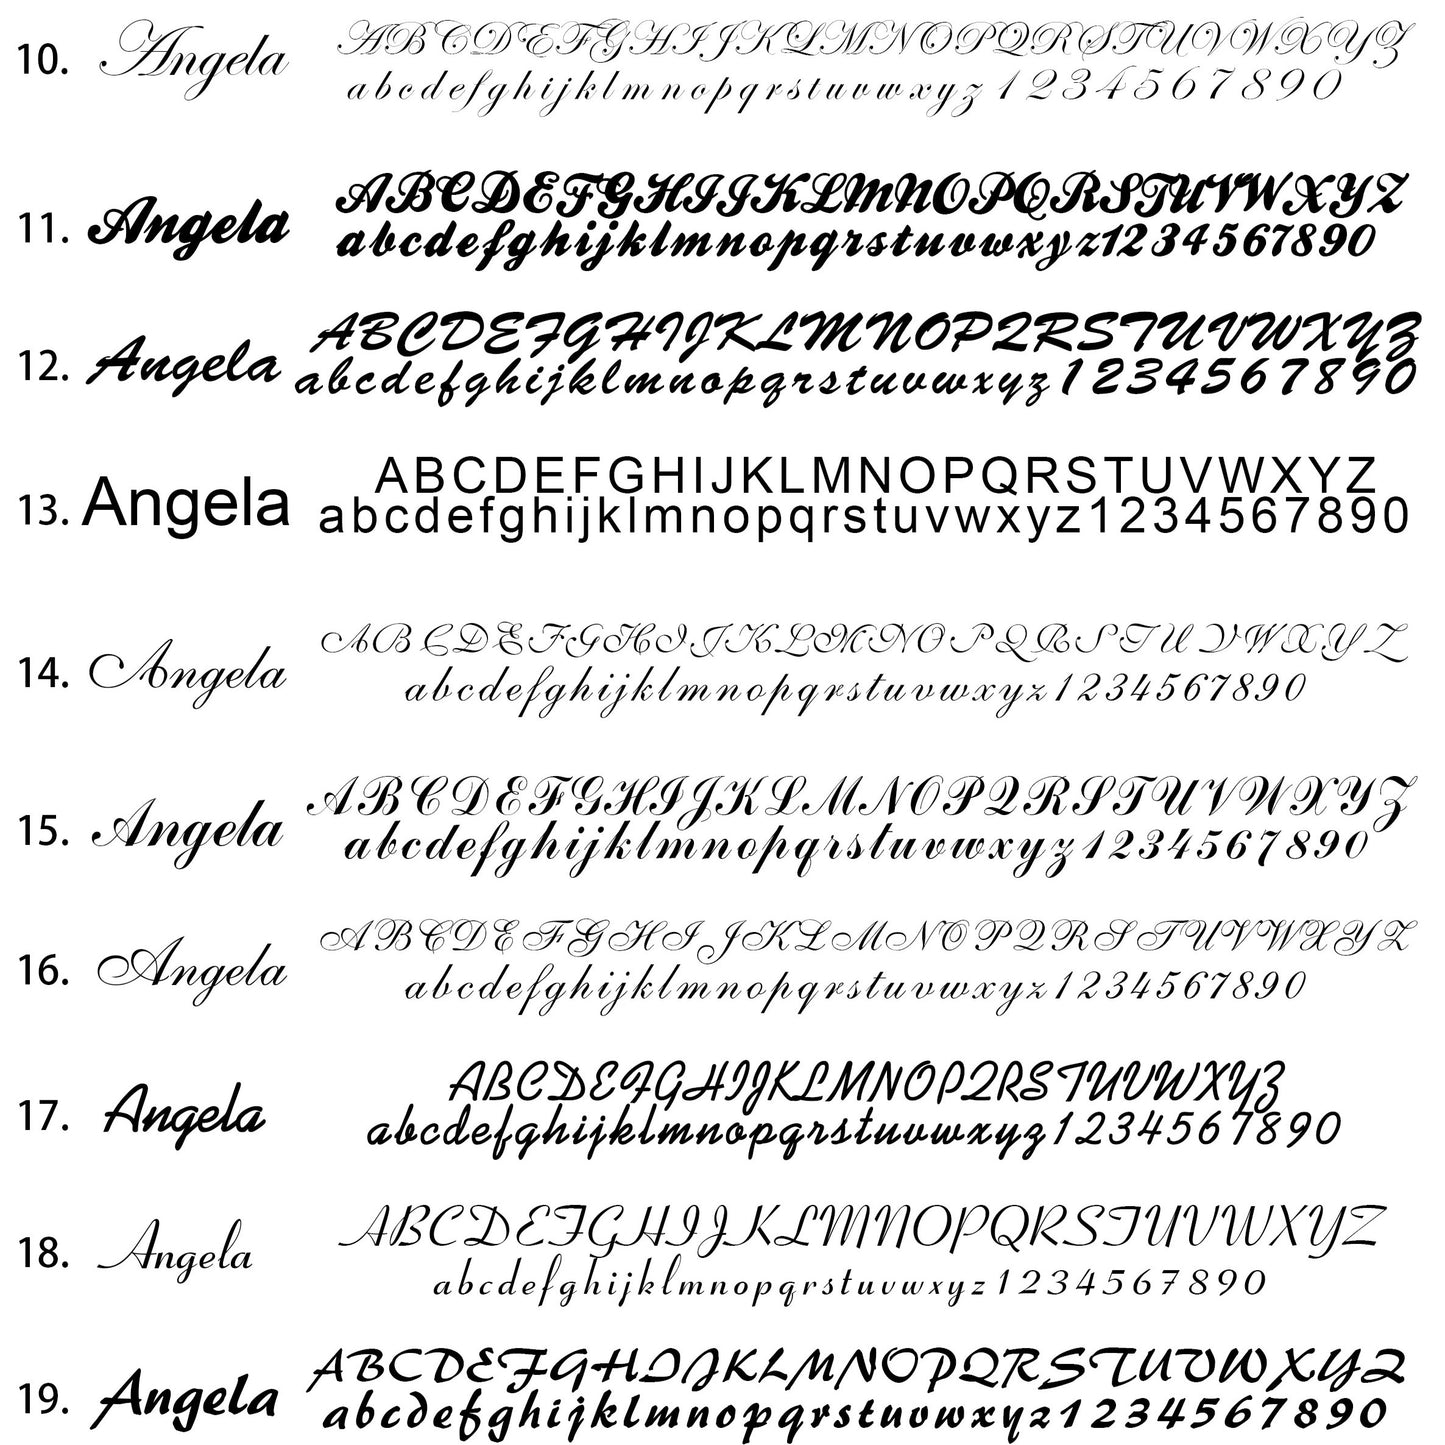 10. Angela ABCDEFGHIJKLMNOPQRSTUVWXYZ
abcdefghijklmnopqrstuvwxyz1234567890
11. Angela ABCDEFGHIJKLMNOPQRSTUVWXYZ
abcdefghijklmnopqrstuvwxyz1234567890
12. Angela ABCDEFGHIJKLMNOPQRSTUVWXYZ
abcdefghijklmnopqrstuvwxyz1234567890
13. Angela ABCDEFGHIJKLMNOPQRSTUVWXYZ
abcdefghijklmnopqrstuvwxyz1234567890
14. Angela ABCDEFGHIJKLMNOPQRSTUVWXYZ
abcdefghijklmnopqrstuvwxyz1234567890
15. Angela ABCDEFGHIJKLMNOPQRSTUVWXYZ
abcdefghijklmnopqrstuvwxyz1234567890
16. Angela ABCDEFGHIJKLMNOPQRSTUVWXYZ
abcdefghijklmnopqrstuvwxyz1234567890
17. Angela ABCDEFGHIJKLMNOPQRSTUVWXYZ
abcdefghijklmnopqrstuvwxyz1234567890
18. Angela ABCDEFGHIJKLMNOPQRSTUVWXYZ
abcdefghijklmnopqrstuvwxyz1234567890
19. Angela ABCDEFGHIJKLMNOPQRSTUVWXYZ
abcdefghijklmnopqrstuvwxyz1234567890